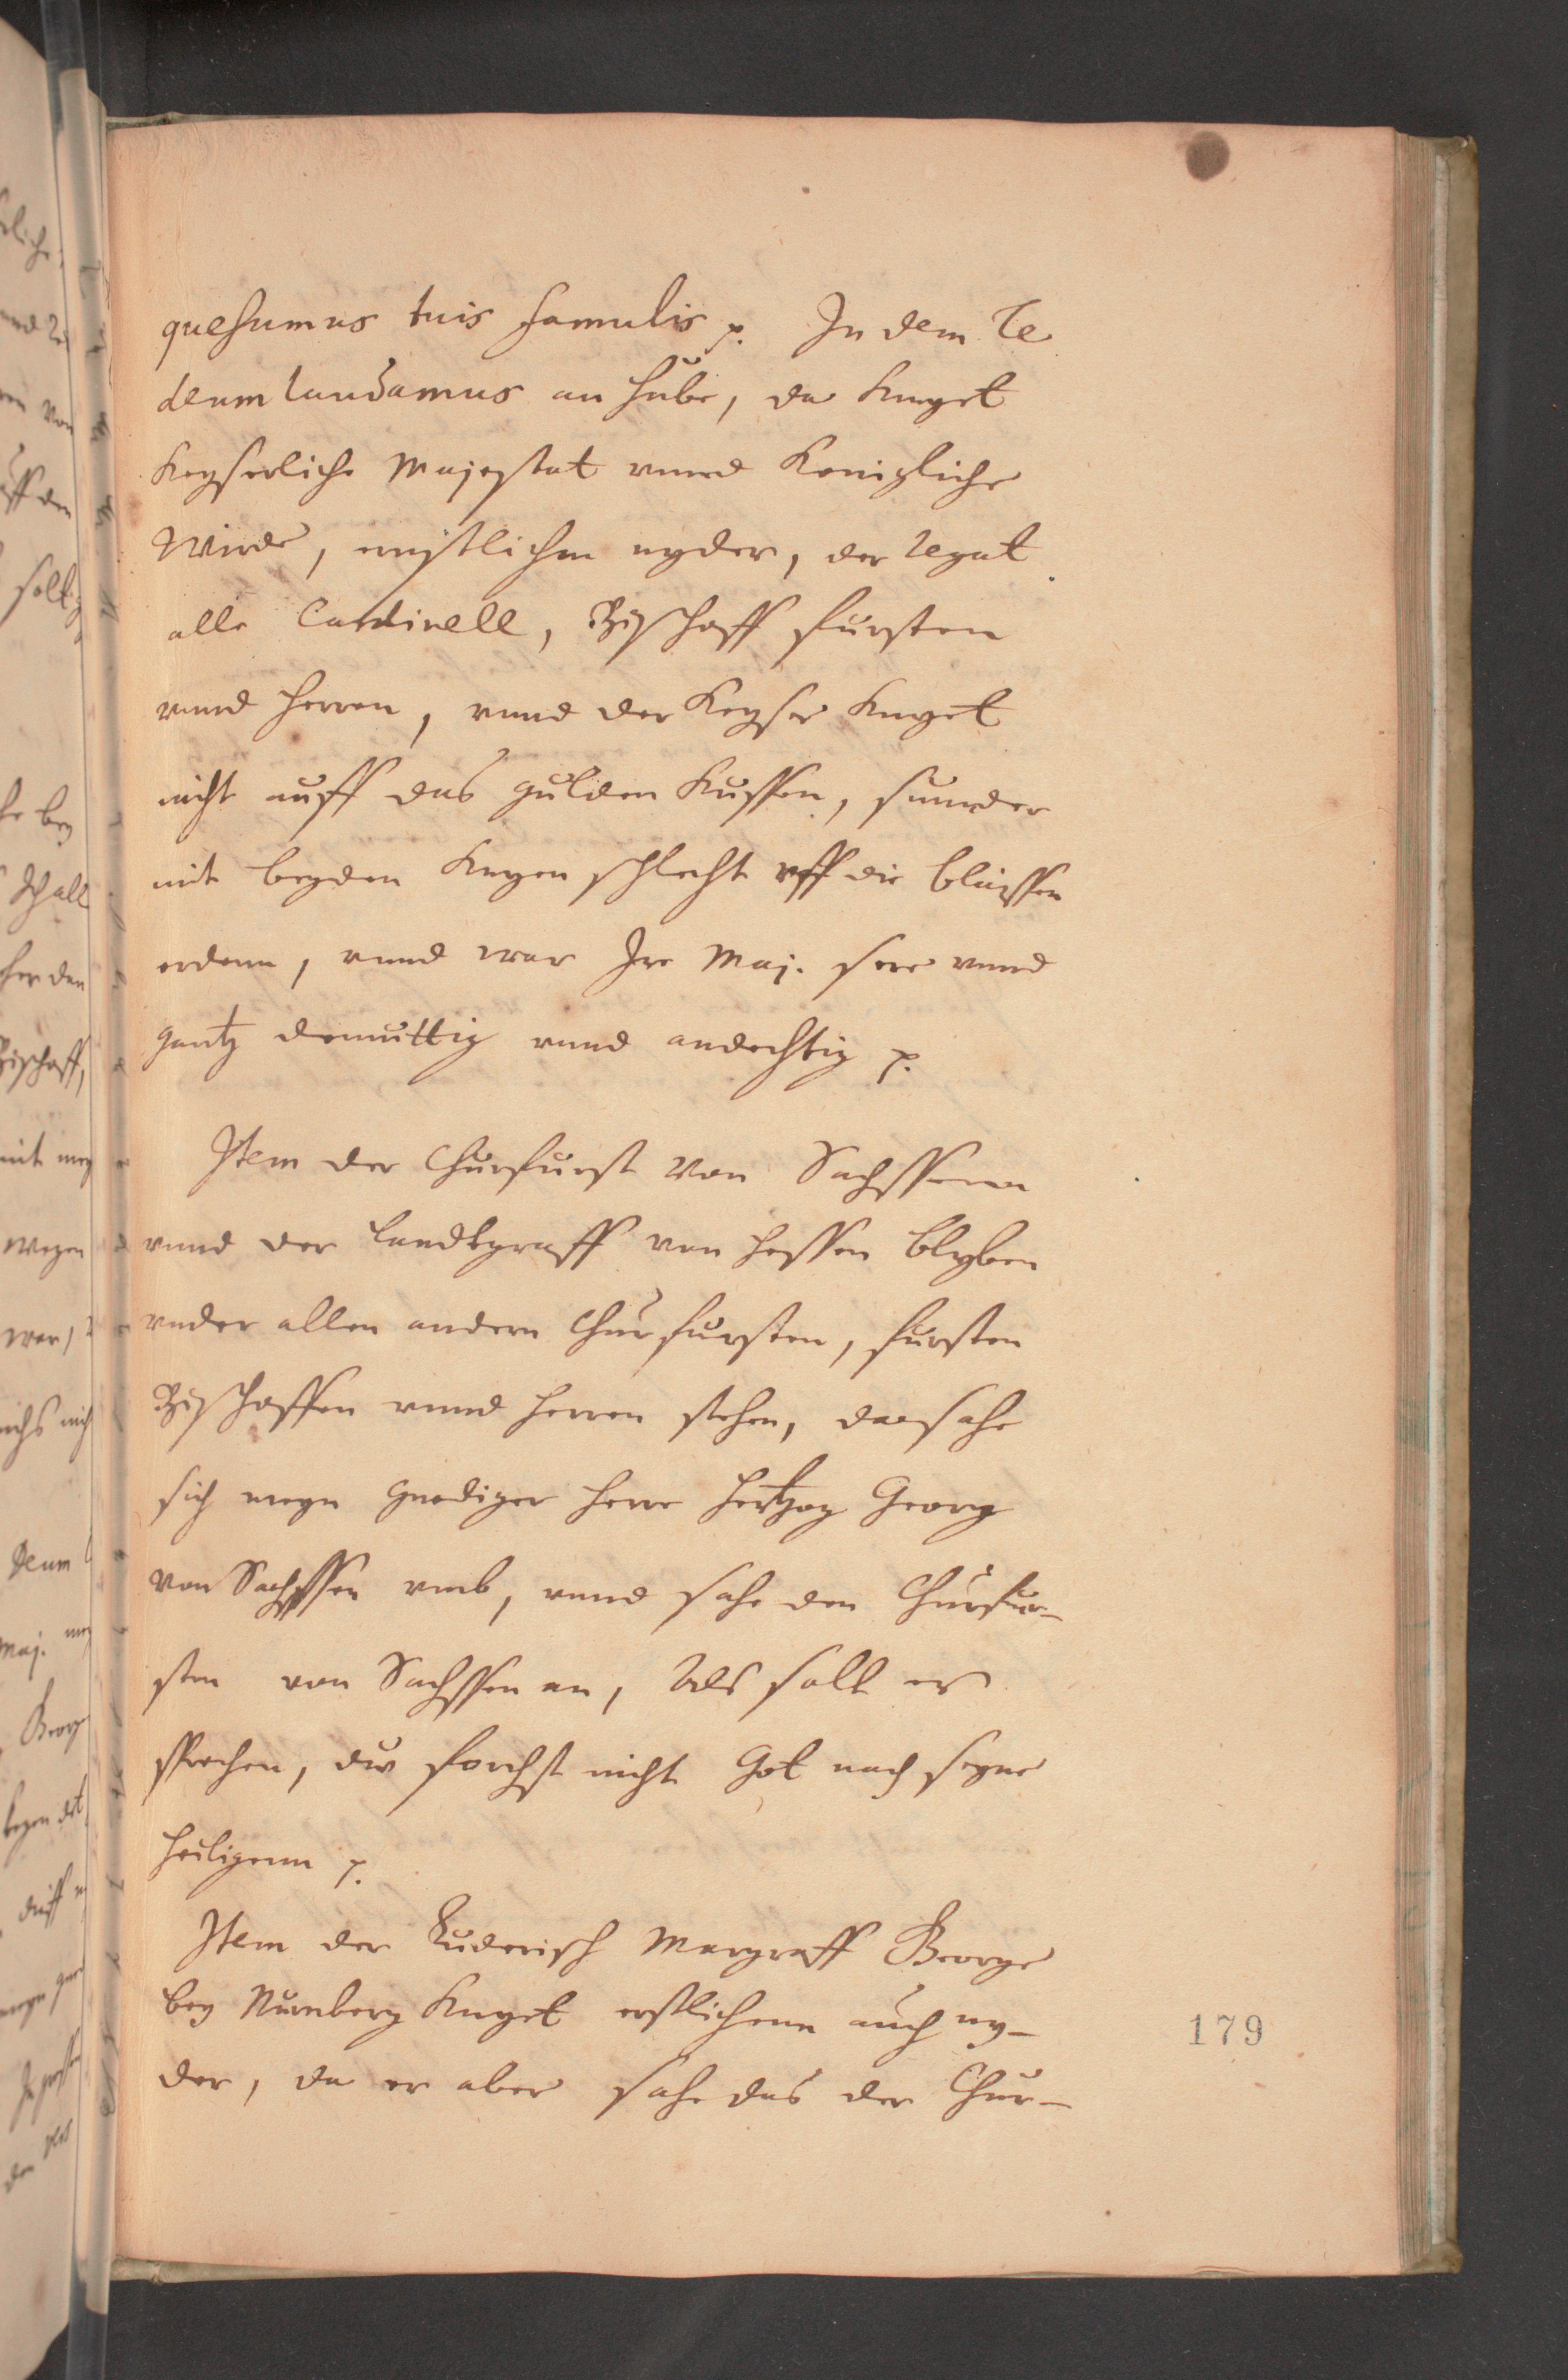 quesumus tuis famulis p. In dem Te
deum laudamus an hube, da knyet
Keyserliche Majestat vnnd Konigliche
Wirde, ernstlichen nyder, der Legat
alle Cardinell, Bischoff fursten
vnnd herren, vnnd der Keyser knyet
nicht auff das gulden Kussen, sunder
mit beyden knyen schlecht vff die blussen
erdenn, vnnd war Ire Maj. sere vnnd
gantz demuttig vnnd andechtig p.
Item der Churfurst von Sachssenn
vnnd der landtgraff von hessen blyben
vnder allen andern Churfursten, fursten
Bischoffen vnnd herren stehen, da sahe
sich meyn gnediger herre hertzog Georg
von Sachssen vmb, vnnd sahe den Churfur-
sten von Sachssen an, Als solt er
sprechen, du forchst nicht Got noch seyne
heiligenn p.
Item der Luderisch Margraff George
bey Nurnberg knyet erstlichenn auch ny-
der, da er aber sahe das der Chur-
179